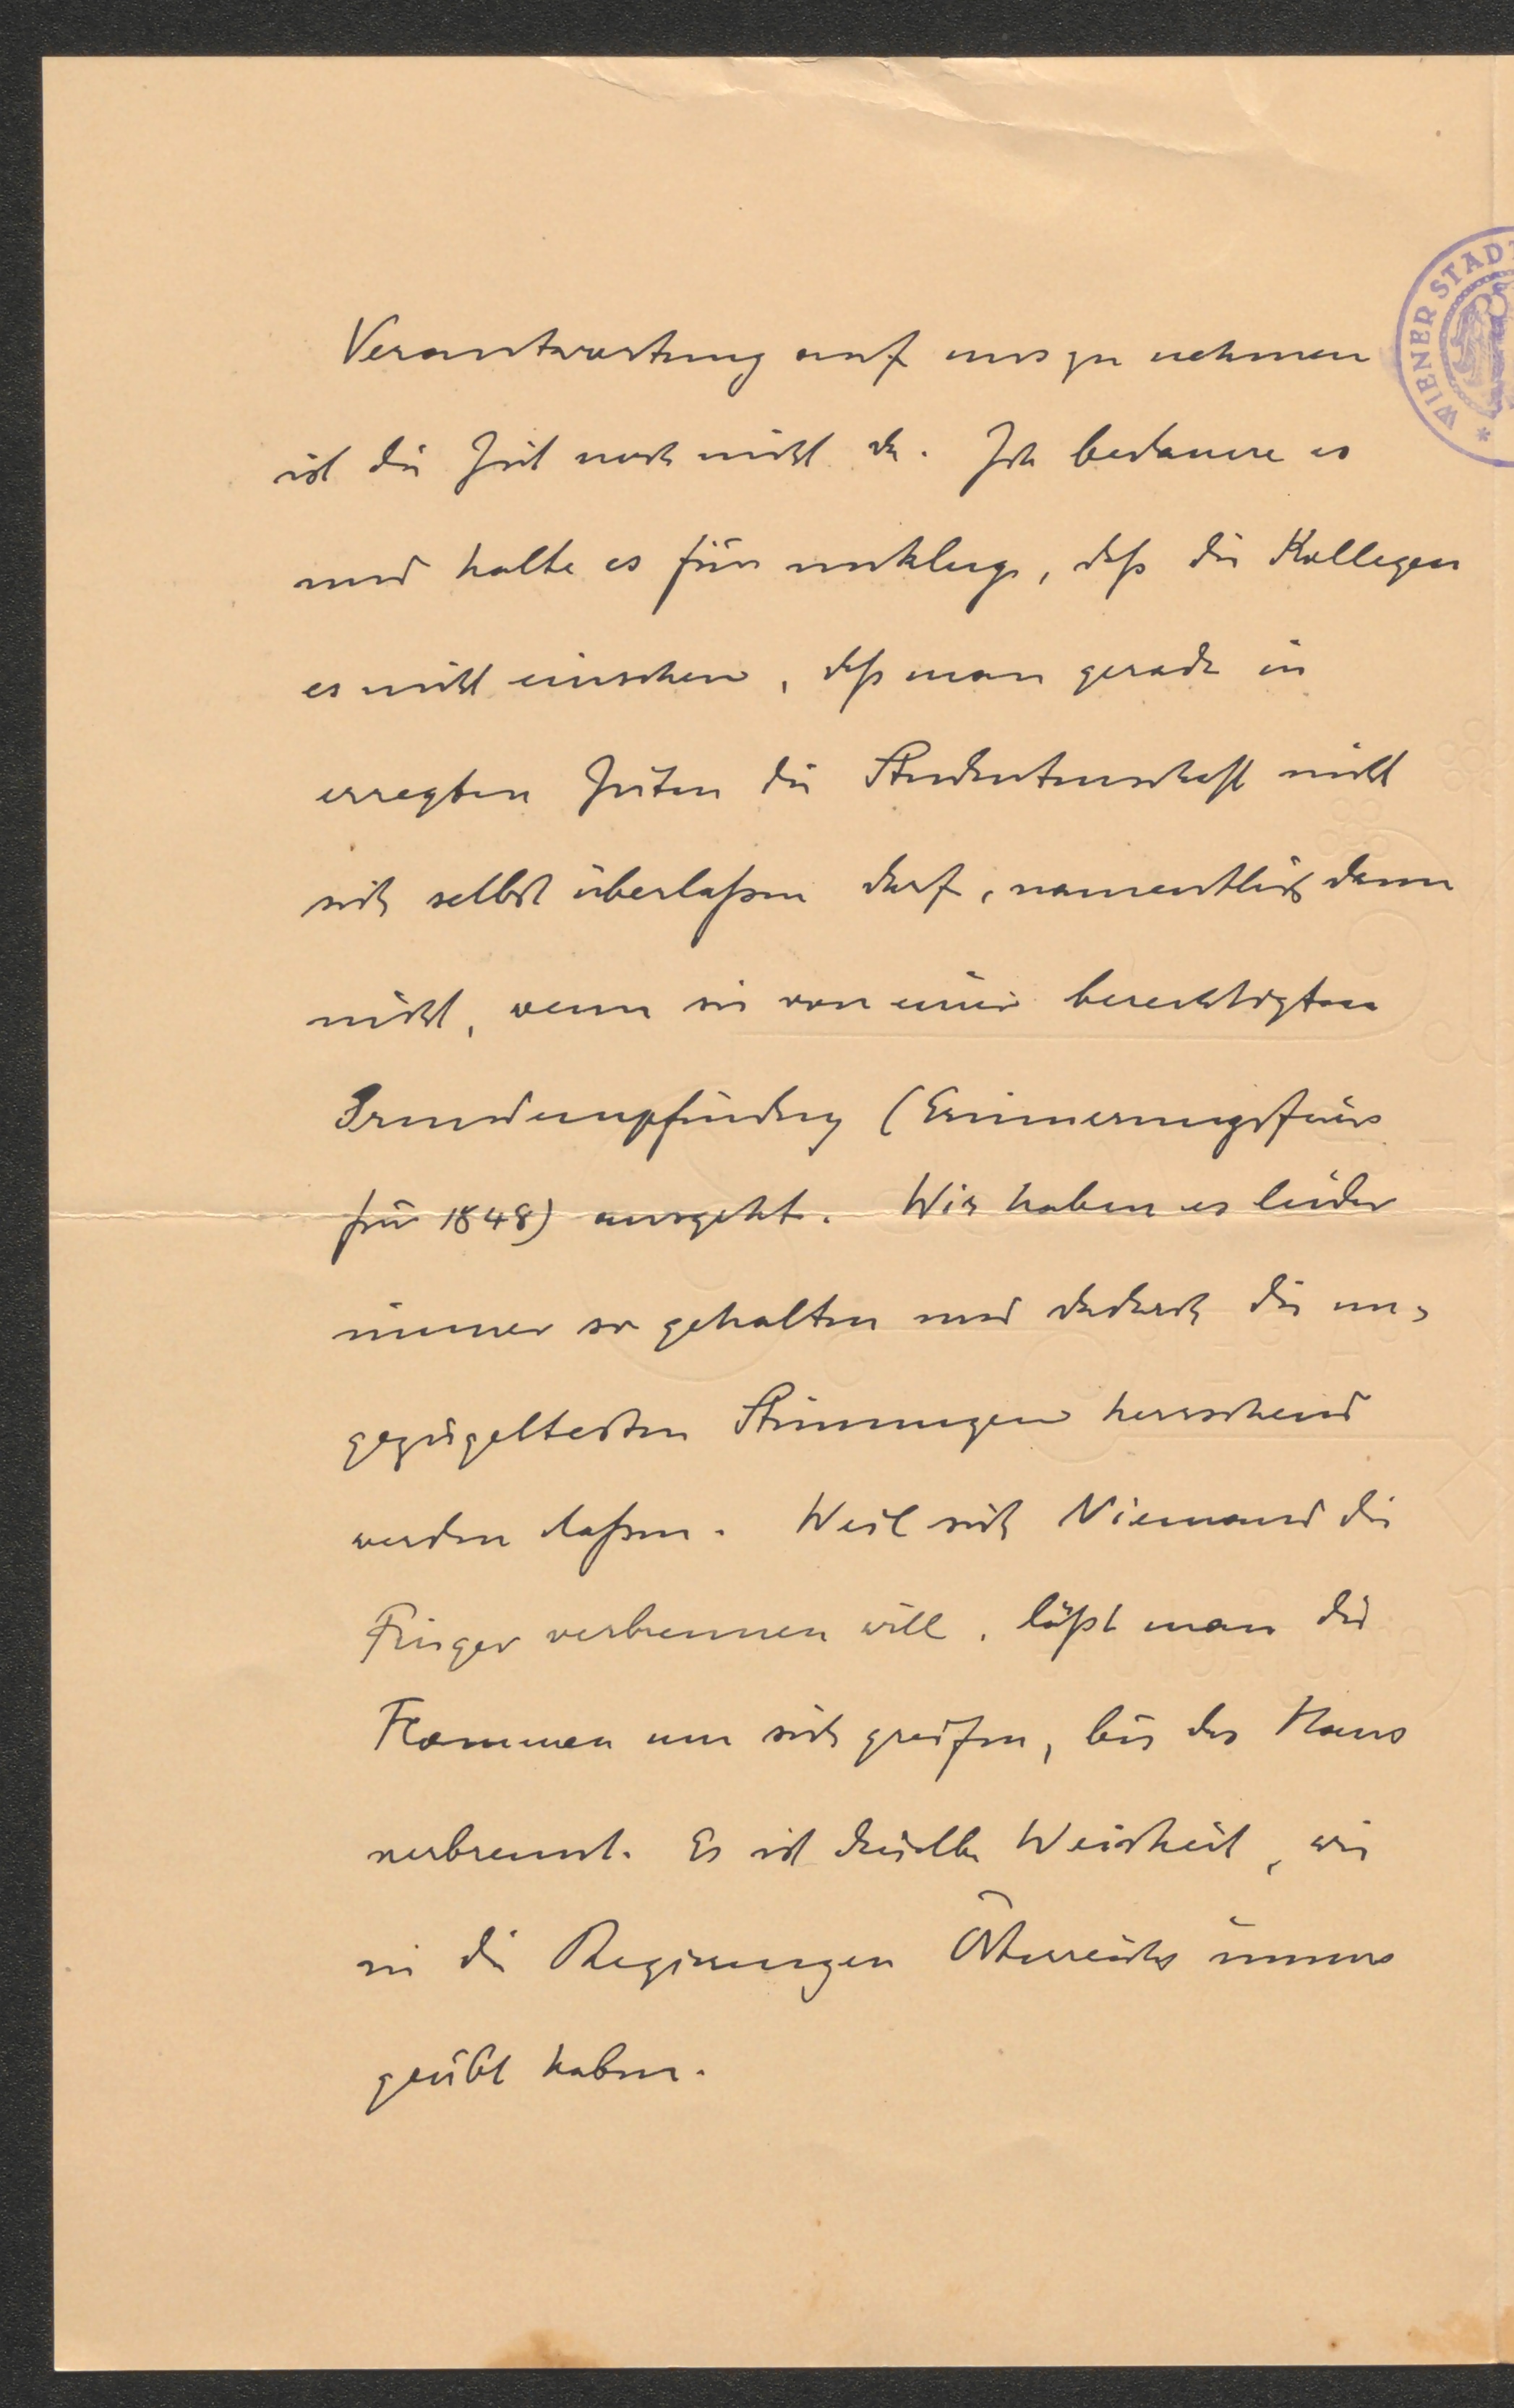 Verantwortung auf uns zu nehmen
ist die Zeit noch nicht da. Ich bedauere es
und halte es für unklug, daß die Kollegen
es nicht einsehen, daß man gerade in
erregten Zeiten die Studentenschaft nicht
sich selbst überlaßen darf, namentlich dann
nicht, wenn sie von einer berechtigten
Grundempfindung (Erinnerungsfeier
für 1848) ausgeht. Wir haben es leider
immer so gehalten und dadurch die un-
gezügeltesten Stimmungen herrschend
werden laßen. Weil sich Niemand die
Finger verbrennen will, läßt man die
Flammen um sich greifen, bis das Haus
verbrennt. Es ist dieselbe Weisheit, wie
sie die Regierungen Österreichs immer
geübt haben.
WIENER STADT